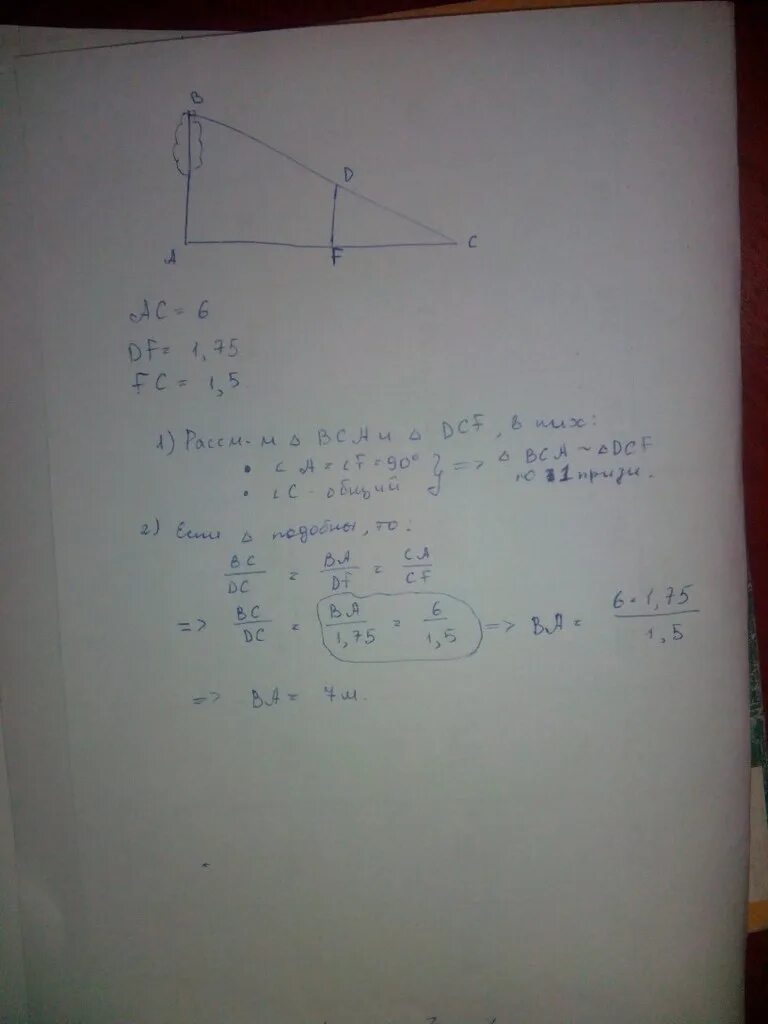 B
D
A F C
AC = 6
DF = 1,75
FC = 1,5
1) Рассм-м △ BCA и △ DCF, в них:
• ∠A = ∠F = 90° } => △ BCA ~ △DCF
• ∠C - общий по 1 призн.
2) Если △ подобны, то:
BC/DC = BA/DF = CA/CF
=> BC/DC = BA/1,75 = 6/1,5 => BA = 6 · 1,75/1,5
=> BA = 7м.